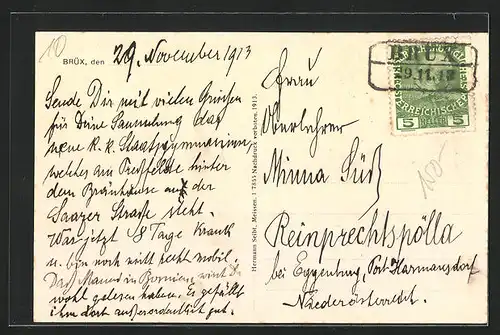 10
BRÜX, den 29. November 1913
Sende Dir mit vielen Grüßen
für Deine Sammlung das
neue k. k. Staatsgymnasium,
welches am hinter
dem Bräuhause auf der
Saazer Straße steht.
War jetzt 8 Tage krank
u. bin noch nicht recht mobil.
Das in Bosnien, wirst Du
wohl gelesen haben. Es gefällt
ihm dort außerordentlich gut.
Hermann Seibt, Meissen. 17855 Nachdruck verboten. 1913.
BRÜX
5 5
Frau
Oberlehrer
Minna Süß
Reinprechtspölla
bei Eggenburg, Post Harmansdorf
Niederösterreich.